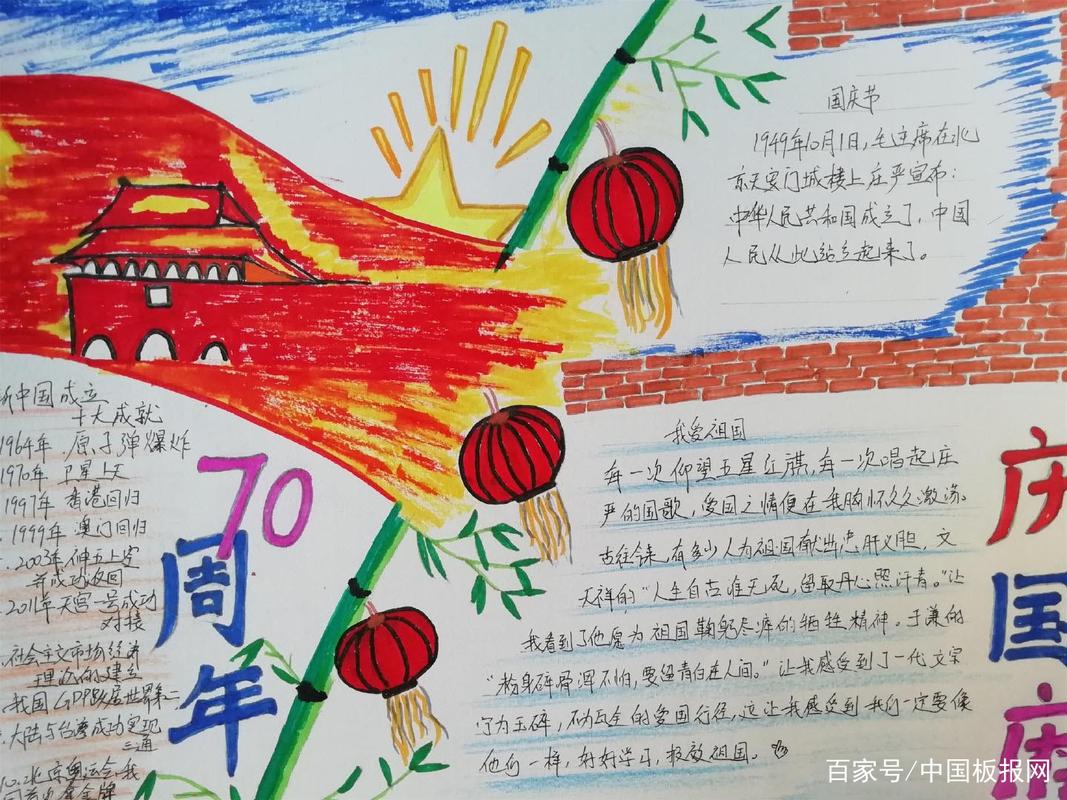 国庆节
1949年10月1日,毛主席在北
京天安门城楼上庄严宣布:
中华人民共和国成立了,中国
人民从此站立起来了。
新中国成立
十大成就
1964年 原子弹爆炸
1970年 卫星上天
1997年 香港回归
1999年 澳门回归
2003年 神五上空
并成功返回
2011年天宫一号成功
对接
社会主义市场经济
理论的建立
我国GDP跃居世界第二
大陆与台湾成功实现
三通
10.北京奥运会我
国首次金牌
70
周
年
我爱祖国
每一次仰望五星红旗,每一次唱起庄
严的国歌,爱国之情便在我胸怀久久激荡。
古往今来,有多少人为祖国献出忠肝义胆,文
天祥的"人生自古谁无死,留取丹心照汗青。"让
我看到了他愿为祖国鞠躬尽瘁的牺牲精神。于谦的
"粉身碎骨浑不怕,要留青白在人间。"让我感受到了一代文宗
宁为玉碎,不为瓦全的爱国行径,这让我感受到我们一定要像
他们一样,好好学习,报效祖国。
庆
国
百家号/中国板报网